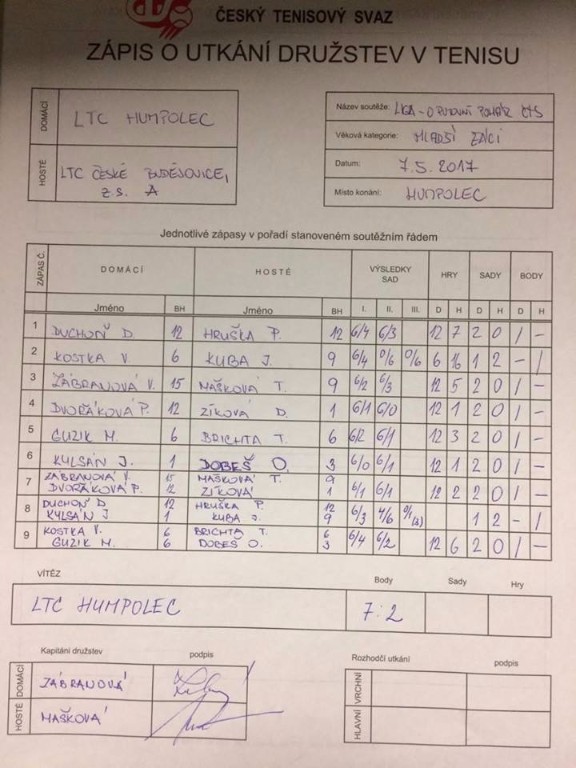 ČESKÝ TENISOVÝ SVAZ
ZÁPIS O UTKÁNÍ DRUŽSTEV V TENISU
DOMÁCÍ LTC HUMPOLEC
HOSTÉ LTC ČESKÉ BUDĚJOVICE,
z.s. A
Název soutěže: LIGA - O PUTOVNÍ POHÁR ČTS
Věková kategorie: MLADŠÍ ŽÁCI
Datum: 7.5.2017
Místo konání: HUMPOLEC
Jednotlivé zápasy v pořadí stanoveném soutěžním řádem
ZÁPAS Č. DOMÁCÍ HOSTÉ VÝSLEDKY SAD HRY SADY BODY
Jméno BH Jméno BH I. II. III. D H D H D H
1 DUCHOŇ D. 12 HRUŠKA P. 12 6/4 6/3 12 7 2 0 1 -
2 KOSTKA V 6 KUBA J. 9 6/4 0/6 0/6 6 16 1 2 - 1
3 ZÁBRANOVÁ V. 15 MAŠKOVÁ T. 9 6/2 6/3 12 5 2 0 1 -
4 DVOŘÁKOVÁ P. 12 ZÍKOVÁ D. 1 6/1 6/0 12 1 2 0 1 -
5 GUZIK M. 6 BRICHTA T. 6 6/2 6/1 12 3 2 0 1 -
6 KYLSÁN J. 1 DOBEŠ O. 3 6/0 6/1 12 1 2 0 1 -
7 ZÁBRANOVÁ V. 15 MAŠKOVÁ T. 9
DVOŘÁKOVÁ P. 12 ZÍKOVÁ 1 6/1 6/1 12 2 2 0 1 -
8 DUCHOŇ D. 12 HRUŠKA P. 12
KYLSÁN J 1 KUBA J. 9 6/3 4/6 1 2 - 1
9 KOSTKA V. 6 BRICHTA T. 6
GUZIK M. 6 DOBEŠ O. 3 6/4 6/2 12 6 2 0 1 -
VÍTĚZ Body Sady Hry
LTC HUMPOLEC 7:2
Kapitáni družstev podpis
DOMÁCÍ ZÁBRANOVÁ
HOSTÉ MAŠKOVÁ
Rozhodčí utkání podpis
VRCHNÍ
HLAVNÍ